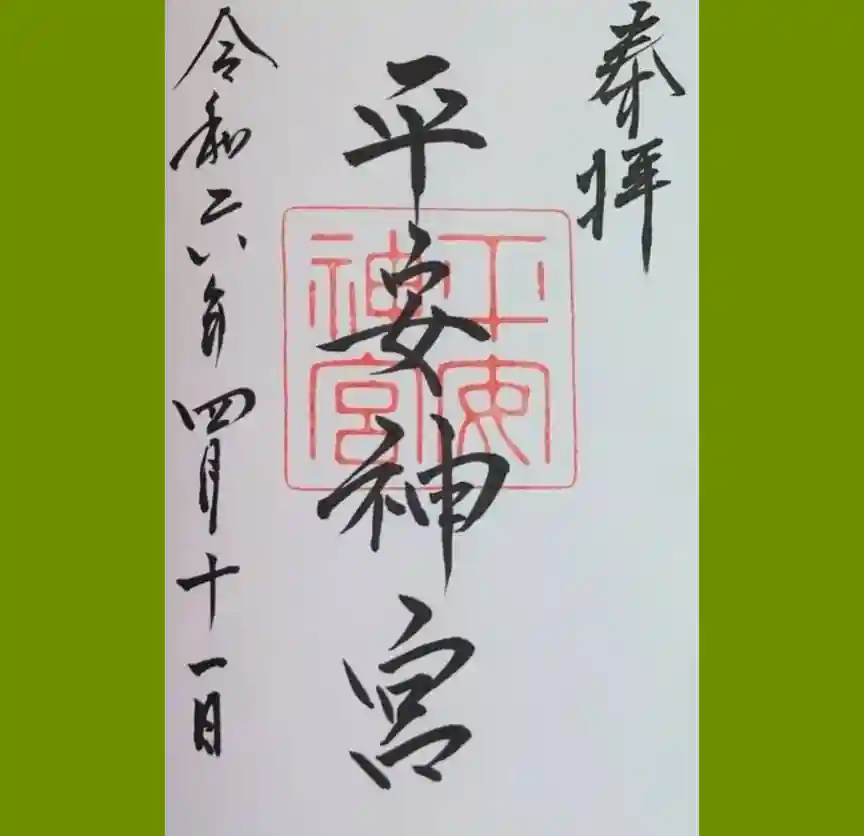 奉拝
平安神宮
平安神宮
令和六年四月十一日